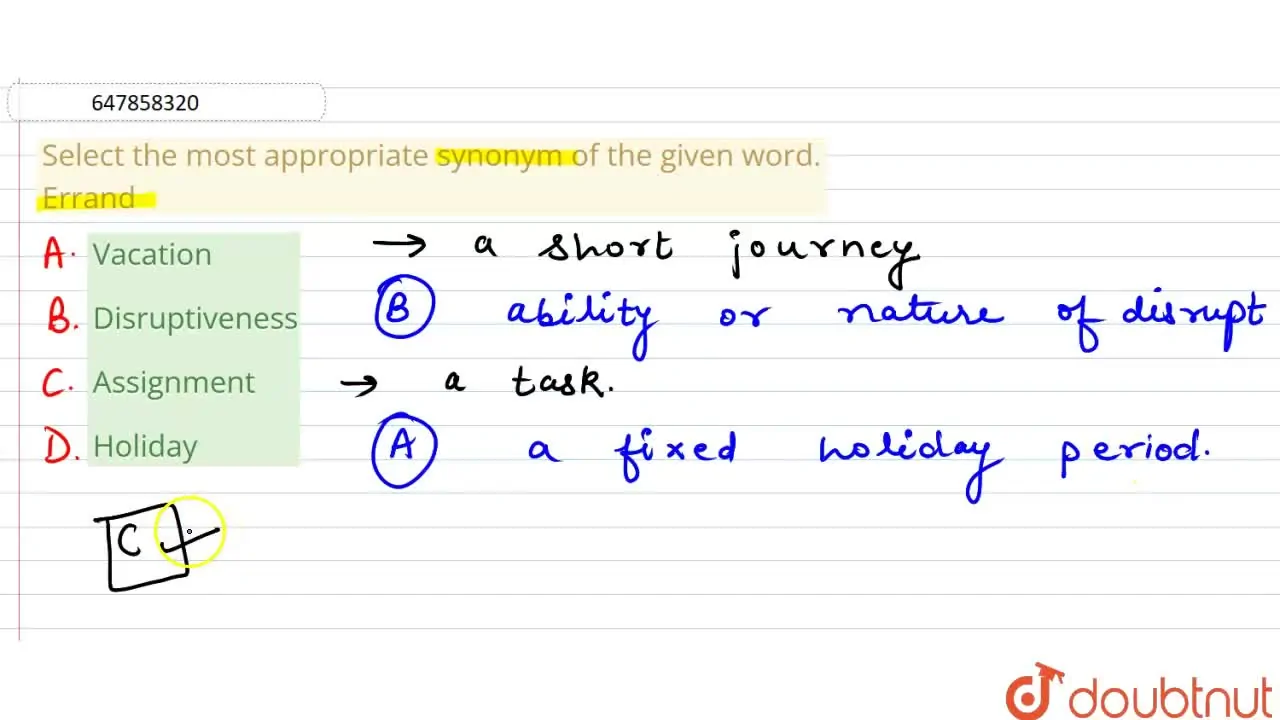 647858320
Select the most appropriate synonym of the given word.
Errand
A. Vacation → a short journey
B. Disruptiveness B ability or nature of disrupt
C. Assignment → a task.
D. Holiday A a fixed holiday period.
C
doubtnut